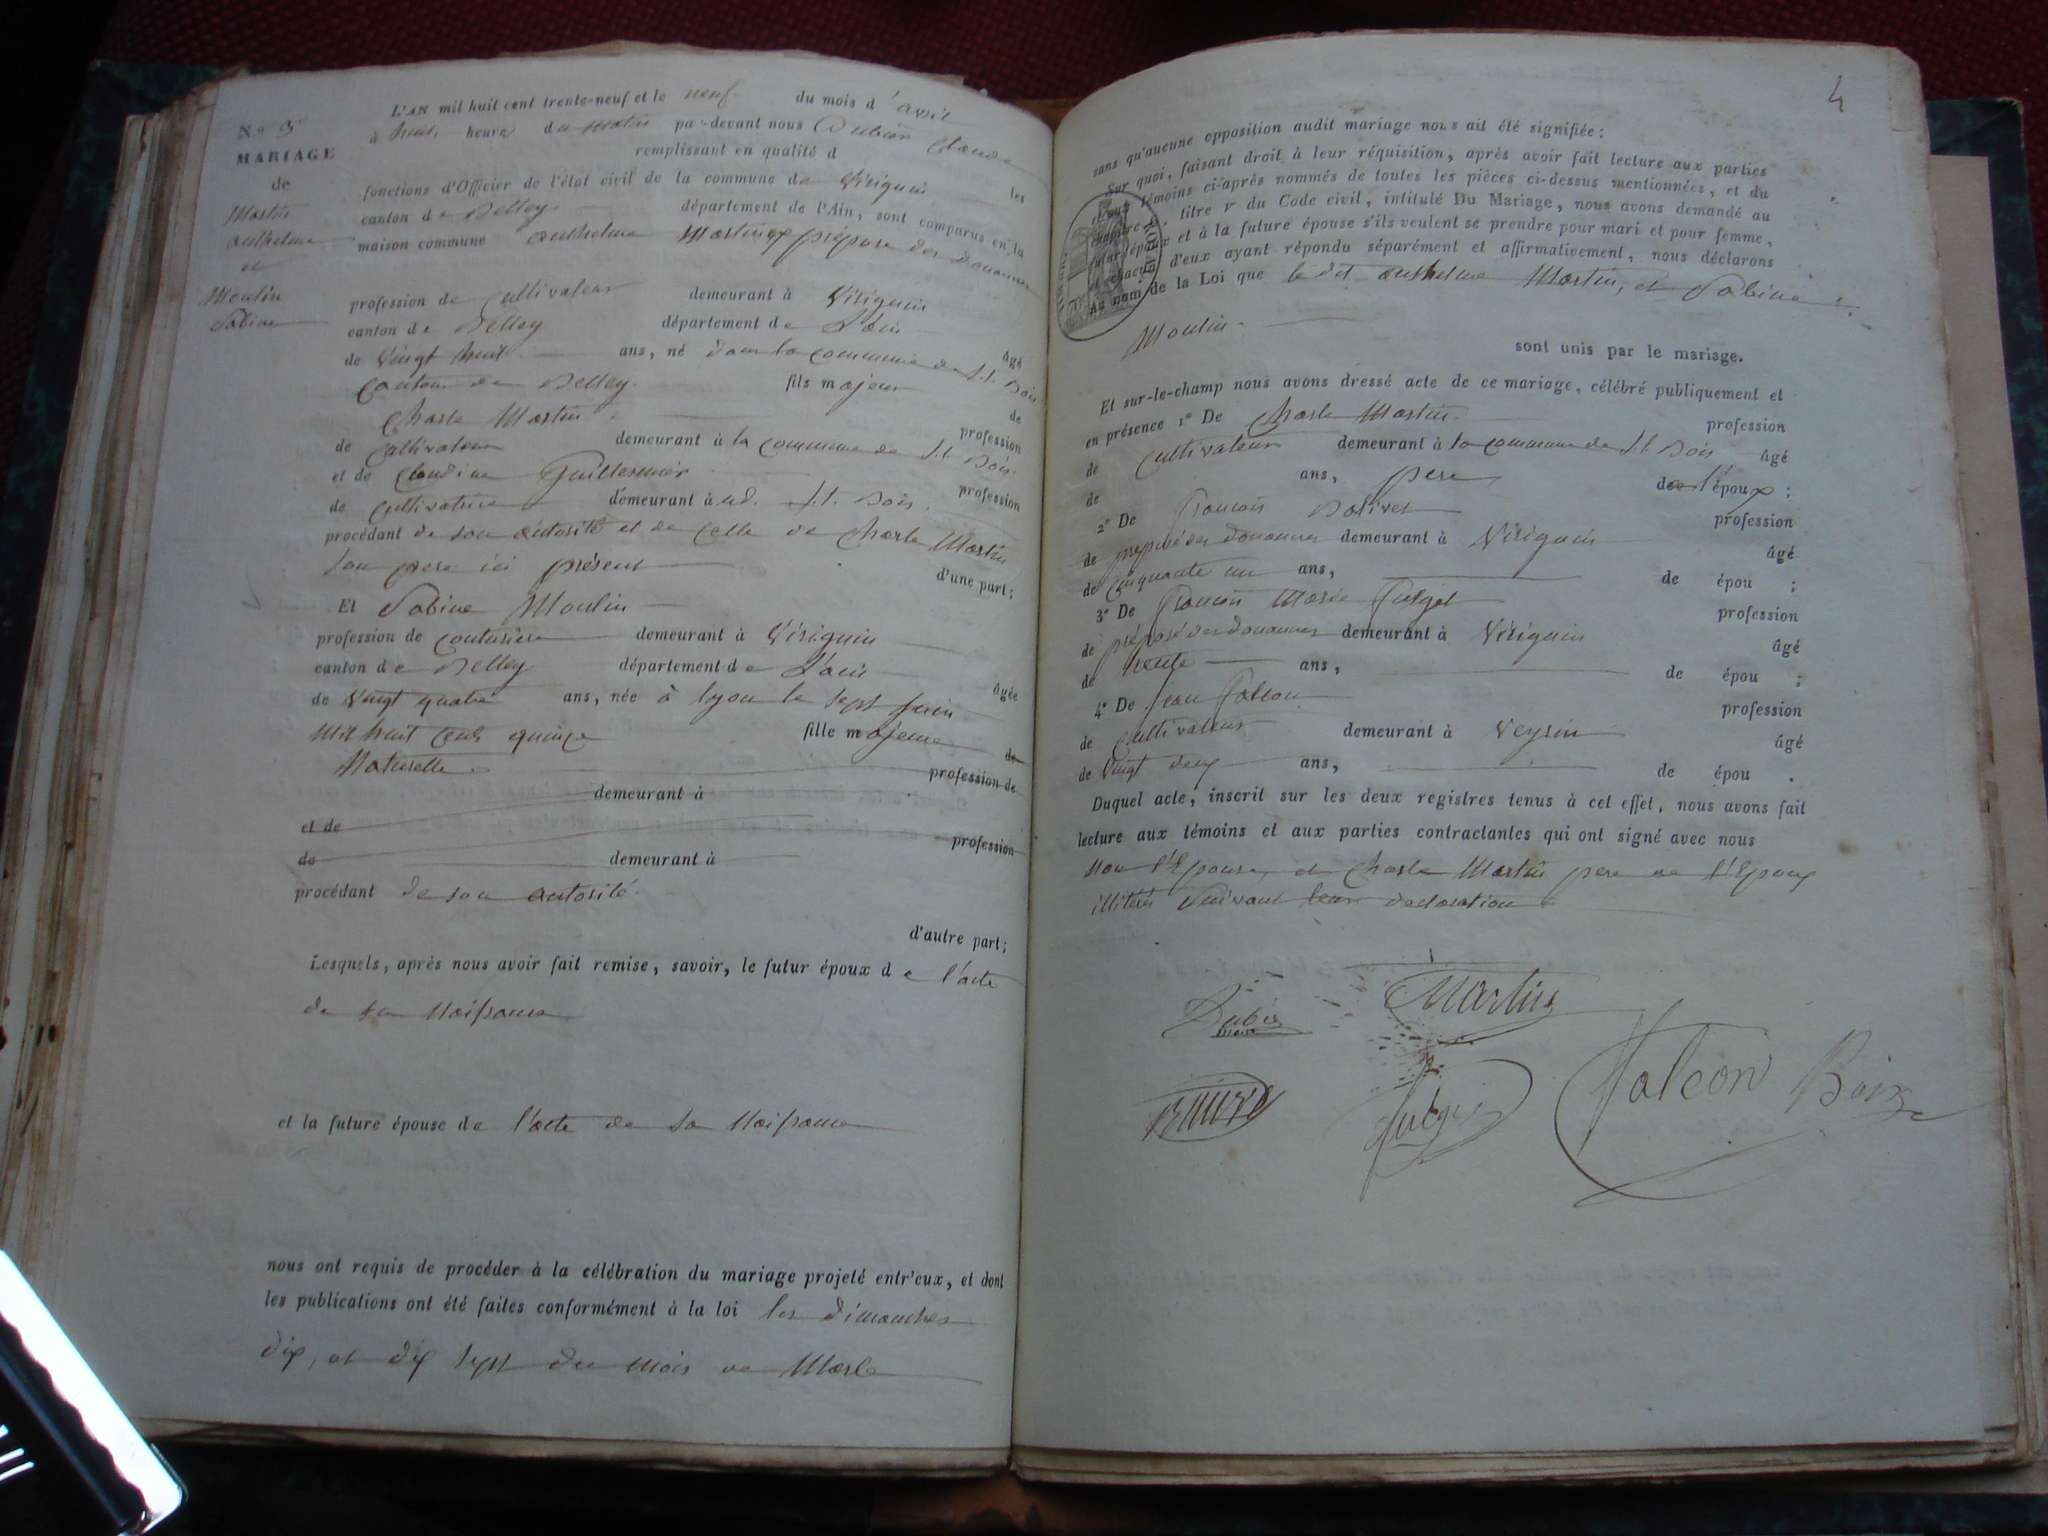 L'AN mil huit cent trente-neuf et le neuf du mois d'avril
N.o 3
à heure du matin par-devant nous Claude
MARIAGE
remplissant en qualité d les
de
fonctions d'Officier de l'état civil de la commune de Virignin
Martin
canton de Belley département de l'Ain, sont comparus en la
anthelme
maison commune anthelme Martin préposé des Douanes
et
Moulin
Sabine
profession de cultivateur demeurant à Virignin
canton de Belley département de L'ain âgé
de Vingt huit ans, né dans la commune de S.t Bois
canton de Belley fils majeur de
Charle Martin profession
de cultivateur demeurant à la commune de S.t Bois
et de Claudine Guillermier profession
de cultivatrice demeurant à ud. S.t Bois
procédant de son autorité et de celle de Charle Martin
son pere ici présent d'une part;
Et Sabine Moulin
profession de couturière demeurant à Virignin
canton de Belley département de L'ain âgée
de Vingt quatre ans, née à lyon le sept juin
Mil huit cent quinze fille majeure de
Naturelle profession de
demeurant à
et de profession
de demeurant à
procédant de son autorité
d'autre part;
Lesquels, après nous avoir fait remise, savoir, le futur époux de l'acte
de sa Naissance
et la future épouse de l'acte de sa Naissance
nous ont requis de procéder à la célébration du mariage projeté entr'eux, et dont
les publications ont été faites conformément à la loi les dimanches
dix, et dix sept du mois de Mars
4
sans qu'aucune opposition audit mariage nous ait été signifiée:
Sur quoi, faisant droit à leur réquisition, après avoir fait lecture aux parties
et aux témoins ci-après nommés de toutes les pièces ci-dessus mentionnées, et du
chapitre titre V du Code civil, intitulé Du Mariage, nous avons demandé au
futur époux et à la future épouse s'ils veulent se prendre pour mari et pour femme,
et chacun d'eux ayant répondu séparément et affirmativement, nous déclarons
au nom de la Loi que le dit anthelme Martin, et Sabine
Moulin
sont unis par le mariage.
Et sur-le-champ nous avons dressé acte de ce mariage, célébré publiquement et
en présence 1° De Charle Martin profession
de cultivateur demeurant à la commune de S.t Bois âgé
de ans, pere de l'époux;
2° De francois profession
de préposé des Douanes demeurant à Virignin âgé
de cinquante un ans, de épou ;
3° De francois Marie profession
de préposé des douannes demeurant à Virignin âgé
de trente ans, de épou ;
4° De jean falcon profession
de cultivateur demeurant à Veyrin âgé
de Vingt deux ans, de épou .
Duquel acte, inscrit sur les deux registres tenus à cet effet, nous avons fait
lecture aux témoins et aux parties contractantes qui ont signé avec nous
Non l'Epouse, et Charle Martin pere de l'Epoux
illitérés Suivant leur declaration
Martin
falcon